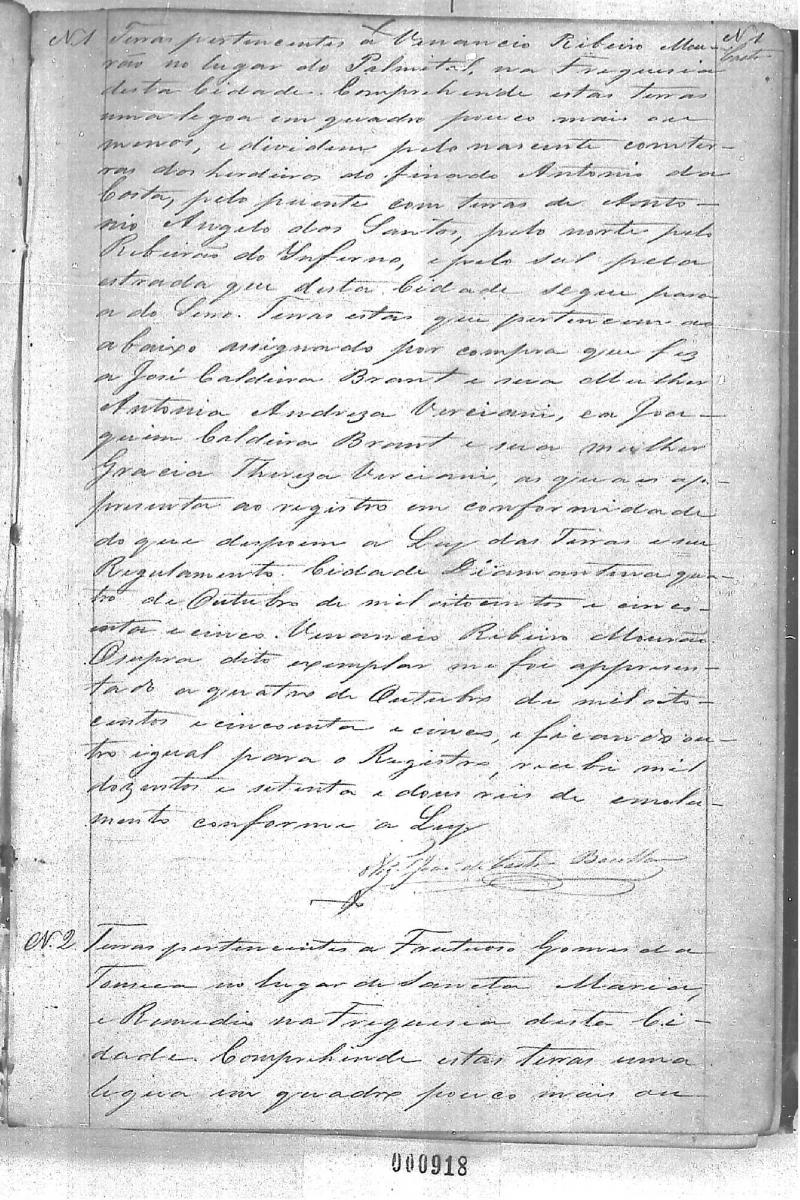 N.1 Terras pertencentes á Venancio Ribeiro Mou-
N.1
rão no lugar do Palmital, na Freguesia
desta Cidade. Comprehende estas terras
uma legoa em quadro pouco mais ou
menos, e dividem pelo nascente com ter-
ras dos herdeiros do finado Antonio da
Costa, pelo puente com terras de Anto-
nio Angelo dos Santos, pelo norte pelo
Ribeirão do Inferno, e pelo sul pela
estrada que desta Cidade segue para
a do Serro. Terras estas que pertencem ao
abaixo assignado por compra que fez
a José Caldeira Brant e sua Mulher
Antonia Andreza Verciani, e a Joa-
quim Caldeira Brant e sua mulher
Gracia Thereza Verciani, as quaes a-
presenta ao registro em conformidade
do que despoem a Ley das Terras e seu
Regulamento. Cidade Diamantina qua-
tro de Outubro de mil oitocentos e cinco-
enta e cinco. Venancio Ribeiro Mourão.
O supra dito exemplar me foi appresen-
tado a quatro de Outubro de mil oito-
centos e cincoenta e cinco, e ficando ou-
tro igual para o Registro, recebi mil
dozentos e setenta e dous reis de emolu-
mento conforme a Ley
José de Castro
N.2 Terras pertencentes a Frutuoso Gomes da
Fonseca no lugar de Sancta Maria,
e Remedio na Freguesia desta Ci-
dade. Comprehende estas terras uma
legua em quadro pouco mais ou
000918